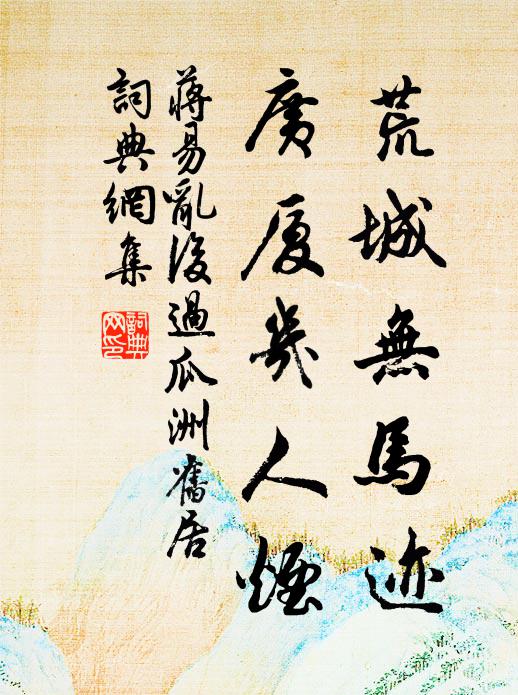 荒城無馬迹
廣厦幾人煙
蔣易亂後過瓜洲舊居
詞典網集
詞典
网印